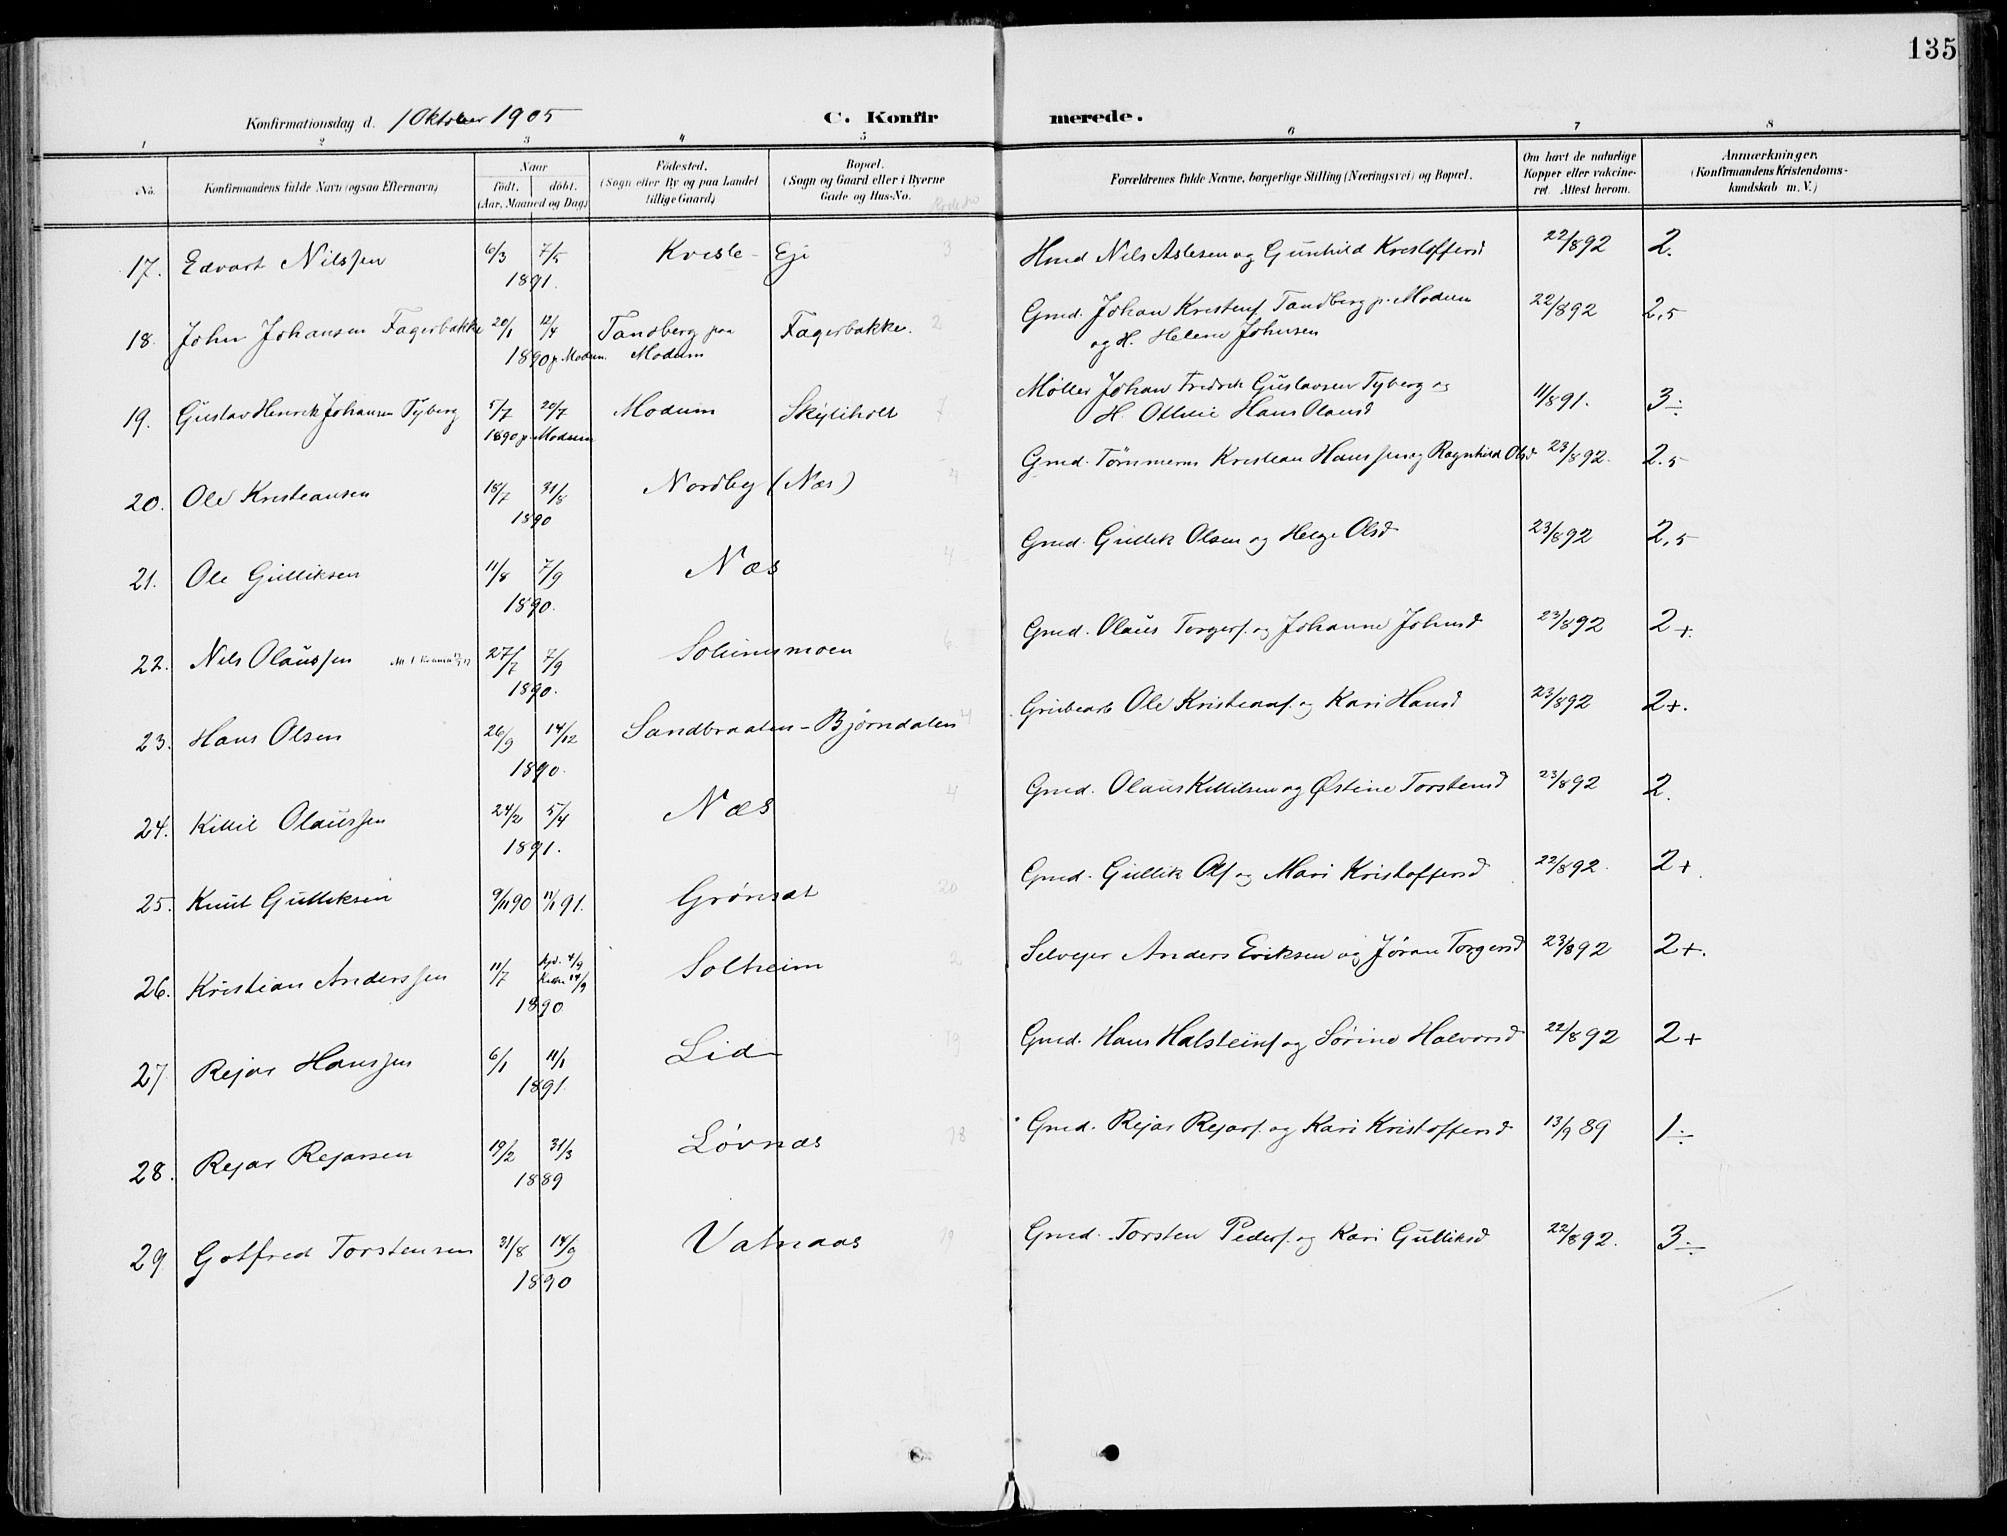 135
Konfirmationsdag d. 1 Oktober 1905 C. Konfirmerede.
1 2 3 4 5 6 7 8
No. Konfirmandens fulde Navn (ogsaa Efternavn) Naar født. døbt. (Aar, Maaned og Dag) Födested. (Sogn eller By og paa Landet tillige Gaard) Bopæl. (Sogn og Gaard eller i Byerne Gade og Hus-No. Forældrenes fulde Navne, borgerlige Stilling (Næringsvei) og Bopæl. Om havt de naturlige Kopper eller vakcineret. Attest herom. Anmærkninger. (Konfirmandens Kristendomskundskab m. V.)
17. Edvart Nilssen 6/3 7/5 1891. Kvisle - Eje 3 Hmd Nils Aslesen og Gunhild Kristoffersd 22/8 92 2.
18. John Johansen Fagerbakke 20/1 12/4 1890 p. Modum. Tandberg paa Modum Fagerbakke. 2 Gmd. Johan Kristens. Tandberg p. Modum og H. Helene Johnsen 22/8 92 2,5
19. Gustav Henrik Johansen Tyberg 5/7 20/7 1890 p. Modum Modum 7 Møller Johan Fredrik Gustavsen Tyberg og H. Othilie Hans Olausd 11/8 91. 3÷
20. Ole Kristiansen 18/7 31/8 1890 Nordby (Næs) 4 Gmd. Tømmerm Kristian Hanssen og Ragnhild Olsd 23/8 92. 2.5
21. Ole Gulliksen 11/8 7/9 1890. Næs 4 Gmd. Gullik Olsen og Helge Olsd 23/8 92 2,5
22. Nils Olaussen 27/7 7/9 1890. 6 Gmd. Olaus Torgers. og Johanne Johnsd 23/8 92 2+.
23. Hans Olsen 26/9 14/12 1890. Sandbraaten - Bjørndalen 4 Grubearb Ole Kristians. og Kari Hansd 23/8 92 2+.
24. Kittil Olaussen 24/2 5/4 1891. Næs 4 Gmd. Olaus Kittilsen og Østine Torstensd 23/8 92 2.
25. Knut Gulliksen 9/11 90 11/1 91. Grønsæt 20 Gmd. Gullik Ols. og Mari Kristoffersd 22/8 92. 2+.
26. Kristian Anderssen 11/7 4/9 14/9 1890 Solheim 2 Selvejer Anders Eriksen og Jøran Torgersd 23/8 92 2+.
27 Rejar Hanssen 6/1 11/1 1891. Lid 19 Gmd. Hans Halsteins. og Sørine Halvorsd 22/8 92 2+
28. Rejar Rejarsen 19/2 31/3 1889 Løvnæs 18 Gmd. Rejar Rejars. og Kari Kristoffersd 13/9 89 1÷
29 Gotfred Torstensen 31/8 14/9 1890 Vatnaas 19 Gmd. Torsten Peders. og Kari Gulliksd 22/8 92. 3÷